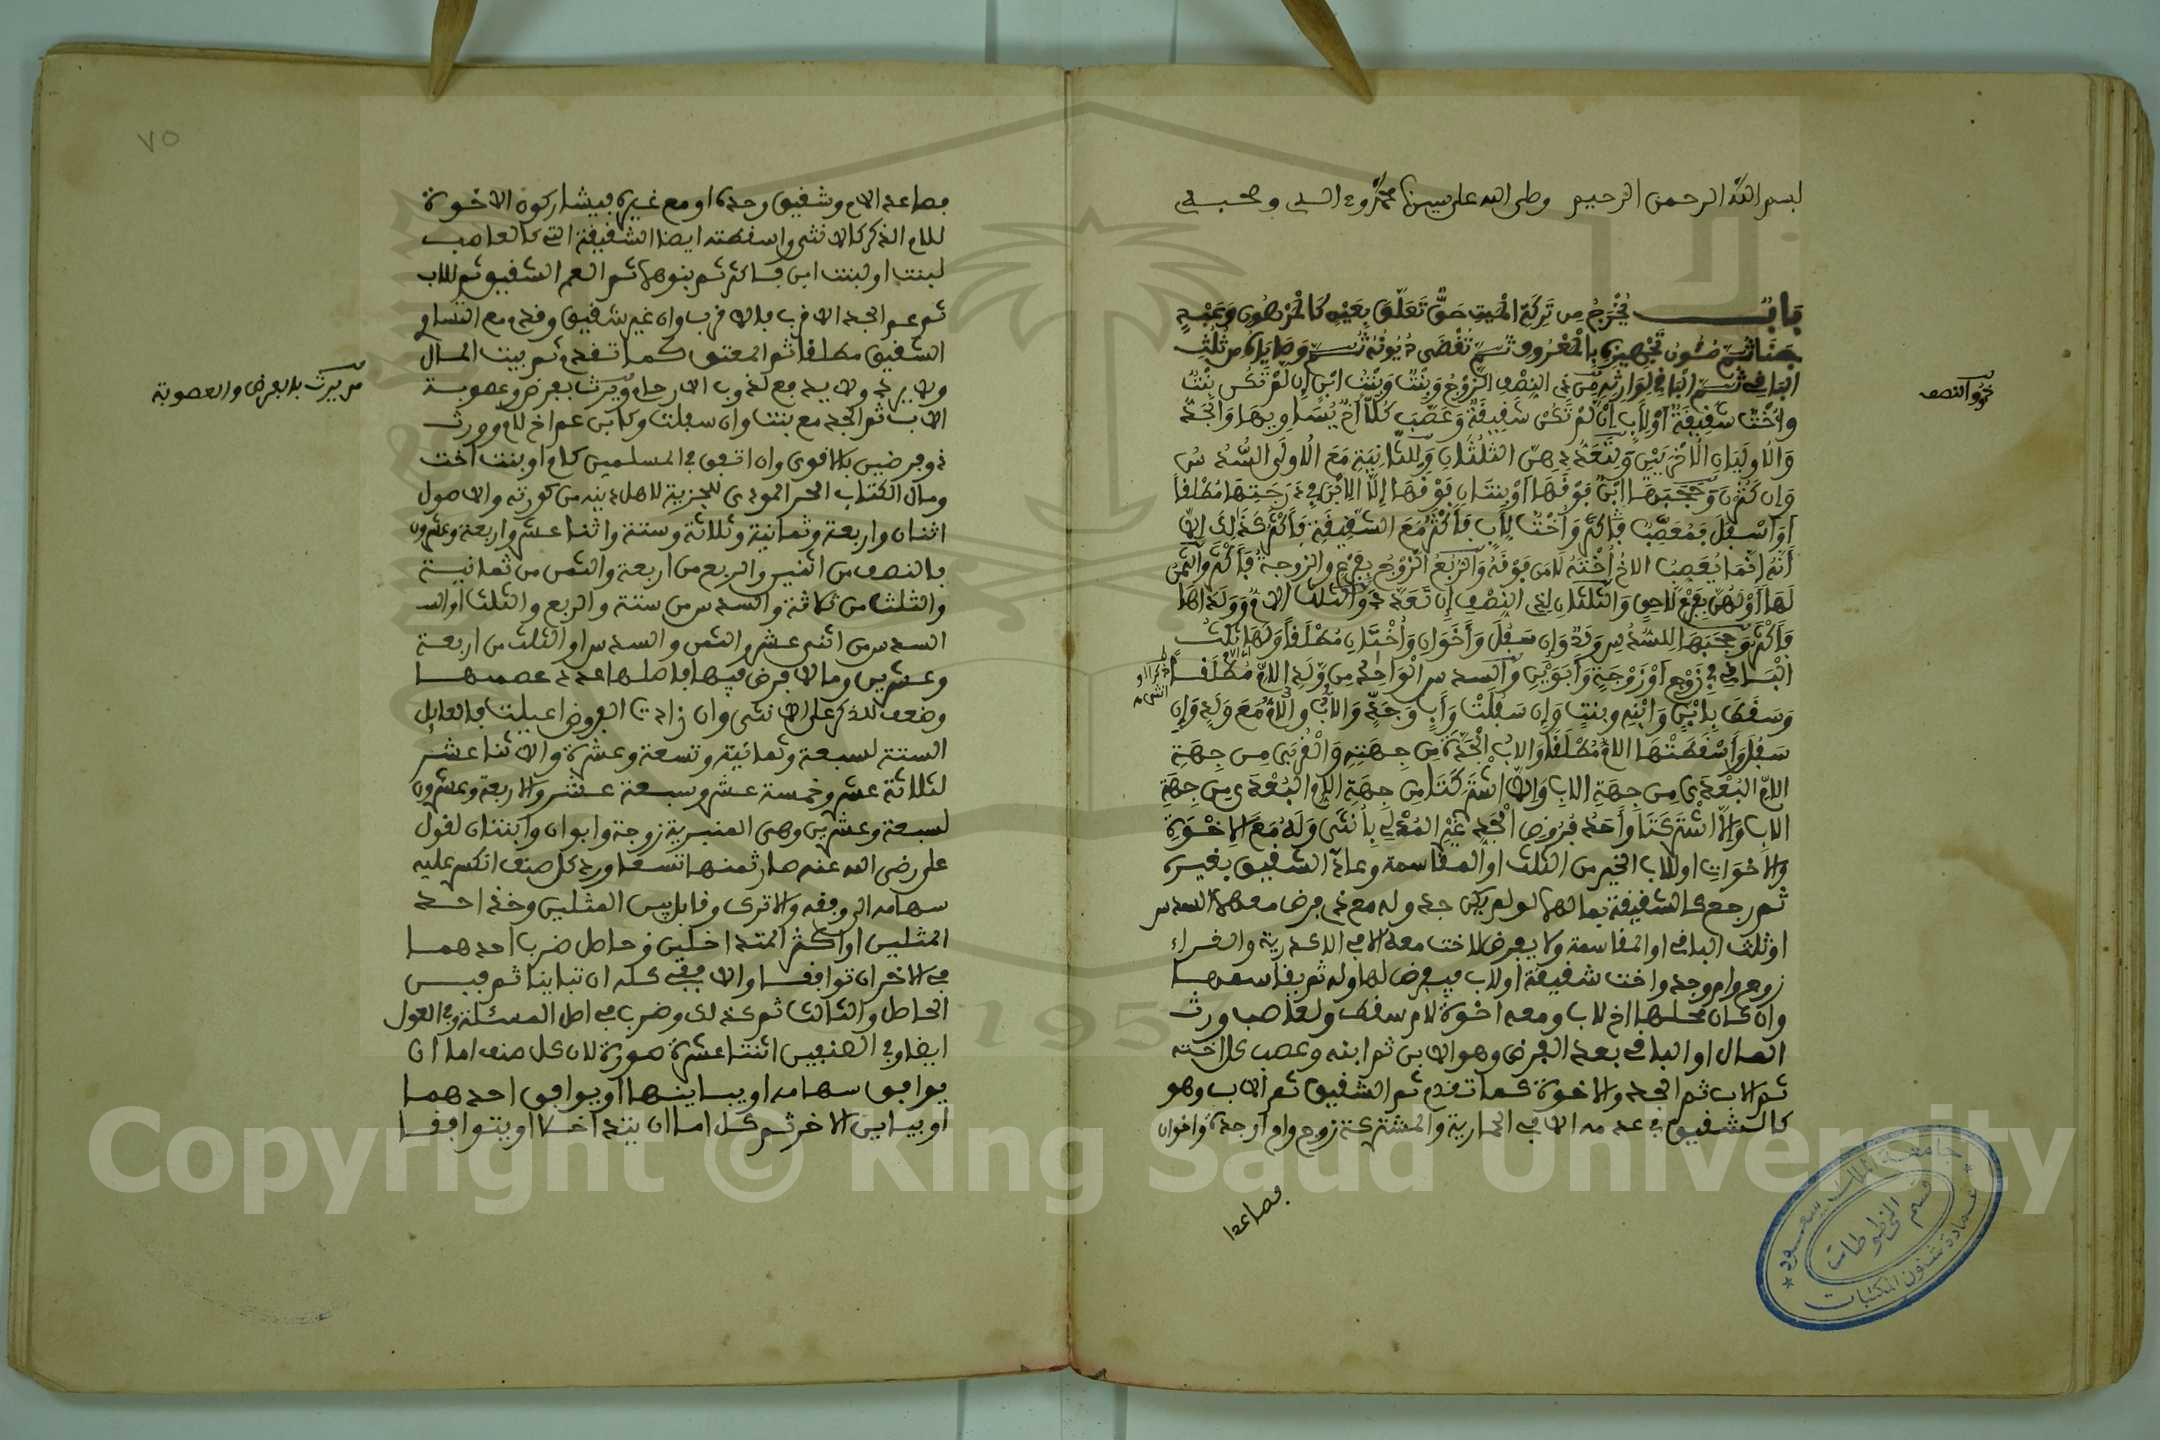 بسم الله الرحمن الرحيم وصلى الله على سيدنا محمد وءاله وصحبه
باب يُخْرَجُ من تَرِكَةِ الْميتِ حَقٌّ تَعَلَّقَ بِعَيْنٍ كَالْمَرْهُونِ وَعَبْدٍ
جَنَا ثم مُؤَنُ تَجْهِيزِهِ بِالْمَعْرُوفِ ثم تُقْضَى دُيُونُهُ ثم وَصَايَاهُ من ثُلُثِ
الباقي ثم الباقي لِوَارِثِهِ من ذي النِصْفِ الزَّوْجُ وَبِنْتٌ وَبِنْتُ ابْنٍ إِن لَّمْ تَكُن بِنْتٌ
وأُخْتٌ شَقِيقَةٌ أَوْ لِأَبٍ إِنْ لَمْ تَكُنْ شَقِيقَةٌ وَعَصَّبَ كُلًّا أَخٌ يُسَاوِيهَا وَالْجَدُّ
وَالْأُولَيَانِ الْأُخْرَيَيْنِ وَلِتَعَدُّدِهِنَّ الثُلُثَانِ وَلِلثَّانِيَةِ مَعَ الْأُولَى السُّدُسُ
وَإِن كَثُرْنَ وَحَجَبَهَا ابْنٌ فَوْقَهَا أَوْ بِنْتَانِ فَوْقَهَا إِلَّا الِابْنَ في دَرَجَتِهَا مُطْلَقًا
أَوْ أَسْفَلَ فَمُعَصِّبٌ وَأُخْتٌ لِأَبٍ فَأَكْثَرُ مَعَ الشَّقِيقَةِ فَأَكْثَرَ كَذَلِكَ إِلَّا
أَنَّهُ إِنَّمَا يُعَصِّبُ الاخُ أُخْتَهُ لَا مَن فَوْقَهُ وَالرُّبُعُ الزَّوْجُ بِفَرْعٍ والزوجةُ فَأَكْثَرُ وَالثُّمُنُ
لَهَا أَوْ لَهُنَّ بِفَرْعٍ لَاحِقٍ وَالثُّلُثَانِ لِذِي النِصْفِ إِن تَعَدَّدَ وَالثُّلُثُ لِأُمٍّ وَوَلَدَاهَا
فَأَكْثَرَ وَحَجَبَهَا لِلسُّدُسِ وَلَدٌ وَإِن سَفُلَ وَأَخَوَانِ وَأُخْتَانِ مُطْلَقًا وَلَهَا ثُلُثُ
الْبَاقِي في زَوْجٍ أَوْ زَوْجَةٍ وَأَبَوَيْنِ وَالسدس لِلْوَاحِدِ مِن وَلَدِ الْأُمِّ مُطْلَقًا
وَسَقَطَ بِابْنٍ وَابْنِهِ وبنتٍ وَإِن سَفُلَتْ وَأَبٍ وَجَدٍّ وَالْأَبُ والْأُمُّ مَعَ وَلَدٍ وَإِن
سَفُلَ وَأَسْقَطَتْهَا الامُّ مُطْلَقًا وَالابُ الْجَدَّةَ مِن جِهَتِهِ وَالْقُرْبَى مِن جِهَةِ
الامِّ الْبُعْدَى مِن جِهَةِ الابِ وَإِلَّا اشْتَرَكَتَا مِن جِهَةِ الام الْبُعْدَى مِن جِهَةِ
الابِ وَإِلَّا اشْتَرَكَتَا وَأَحَدُ فُرُوضِ الْجَدِّ غَيْرِ الْمُدْلِي بِأُنْثَى وَلَهُ مَعَ الِاخْوَةِ
والاخَوَاتِ او للاب الخير من الثلث او المقاسمة وعادّ الشقيق بغيره
ثم رجع كالشقيقة بمالها لو لم يكن جد وله مع ذي فرض معهما السدس
او ثلث الباقي او المقاسمة ولا يفرض لاخت معه الا في الاكدرية والغراء
زوج وام وجد واخت شقيقة او لاب فيفرض لها وله ثم يقاسمها
وان كان محلها اخ لاب ومعه اخوة لام سقط ولعاصب ورث
المال او الباقي بعد الفرض وهو الابن ثم ابنه وعصب كل اخته
ثم الاب ثم الجد والاخوة كما تقدم ثم الشقيق ثم للاب وهو
كالشقيق في عدمه الا في الحمارية والمشتركة زوج وام او جدة واخوان
فصاعدا
ذوو النصف
ذكرا او
انثى
فصاعدا لام وشقيق وحده او مع غيره فيشاركون الاخوة
للام الذكر كالانثى واسقطته ايضا الشقيقة التي كالعاصب
لبنت او لبنت ابن فاكثر ثم بنوهما ثم العم الشقيق ثم للاب
ثم عم الجد الاقرب فالاقرب وان غير شقيق وقدم مع التساوي
الشقيق مطلقا ثم المعتق كما تقدم ثم بيت المال
ولا يرد ولا يدفع لذوي الارحام ويرث بفرض وعصوبة
الاب ثم الجد مع بنت وان سفلت وكابن عم اخ لام وورث
ذو فرضين بالاقوى وان اتفق في المسلمين كام او بنت اخت
ومال الكتابي الحر المودي للجزية لاهل دينه من كورته والاصول
اثنان واربعة وثمانية وثلاثة وستة واثنا عشر واربعة وعشرون
فالنصف من اثنين والربع من اربعة والثمن من ثمانية
والثلث من ثلاثة والسدس من ستة والربع والثلث او السد
السدس من اثني عشر والثمن والسدس او الثلث من اربعة
وعشرين وما لا فرض فيها فاصلها عدد عصبتها
وضعف للذكر على الانثى وان زادت الفروض اعيلت فالعايل
الستة لسبعة وثمانية وتسعة وعشرة والاثنا عشر
لثلاثة عشر وخمسة عشر وسبعة عشر والاربعة وعشرون
لسبعة وعشرين وهي المنبرية زوجة وابوان وابنتان لقول
علي رضي الله عنه صار ثمنها تسعا ورد كل صنف انكسر عليه
سهامه الى وفقه والا ترك وقابل بين المثلين وخذ احد
المثلين او اكثر المتداخلين وحاصل ضرب احدهما
في الاخر ان توافقا والا ففي كله ان تباينا ثم فبين
الحاصل والثالث ثم كذلك وضرب في اصل المسئلة وفي العول
ايضا وفي الصنفين اثنتا عشرة صورة لان كل صنف اما ان
يوافق سهامه او يباينها او يوافق احدهما
او يباين الاخر ثم كل اما ان يتداخلا او يتوافقا
من يرث بالفرض والعصوبة
٧٥
جامعة الملك سعود
قسم المخطوطات
عمادة شئون المكتبات
1957
Copyright © King Saud University